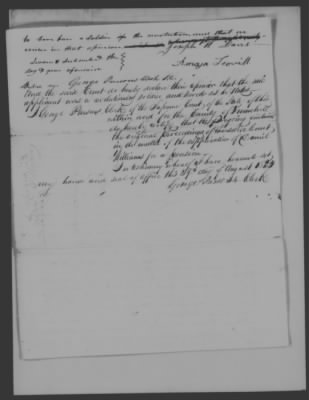 to have been a soldier of the revolution, and that we
concur in that opinion
Joseph W.
Sworn & Subscribed the
day & year aforesaid
Before me George Parsons Clerk
And the said Court do hereby declare their opinion that the said
applicant was a revolutionary soldier and
I George Parsons Clerk of the Supreme Court of the State of Ohio
within and for the County of Trumbull
do hereby certify that the foregoing contains
the original Proceedings of the said Court
in the matter of the application of
Williams for a pension
In testimony whereof I have hereunto set
my hand and seal of office this day of August
George Parsons Clerk